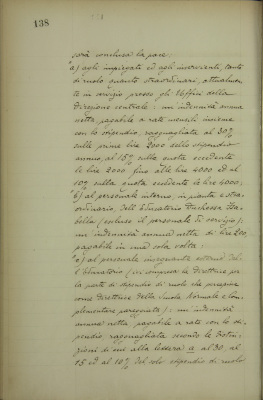 138
sarà conclusa la pace:
a) agli impiegati ed agli inservienti, tanto
di ruolo quanto straordinari, attualmen
te in servizio presso gli Uffici della
Direzione centrale: un'indennità annua
netta, pagabile a rate mensili insieme
con lo stipendio, ragguagliata al 30%
sulle prime lire 2000 dello stipendio
annuo, al 15% sulla quota eccedente
le lire 2000 fino alle lire 4000 ed al
10% sulla quota eccedente le lire 4000;
b) al personale interno, in pianta e stra
ordinario, dell'Educatorio Duchessa Isa
bella (escluso il personale di servizio);
un'indennità annua netta di lire 200
pagabile in una sola volta;
c) al personale insegnante esterno del
l'Educatorio (ivi compresa la Direttrice per
la parte di stipendio di ruolo che percepisce
come Direttrice della Scuola Normale e Com
plementare pareggiata): un'indennità
annua netta pagabile a rate con lo sti
pendio ragguagliata secondo le distin
zioni di cui alla lettera a al 30, al
15 ed al 10% del solo stipendio di ruolo